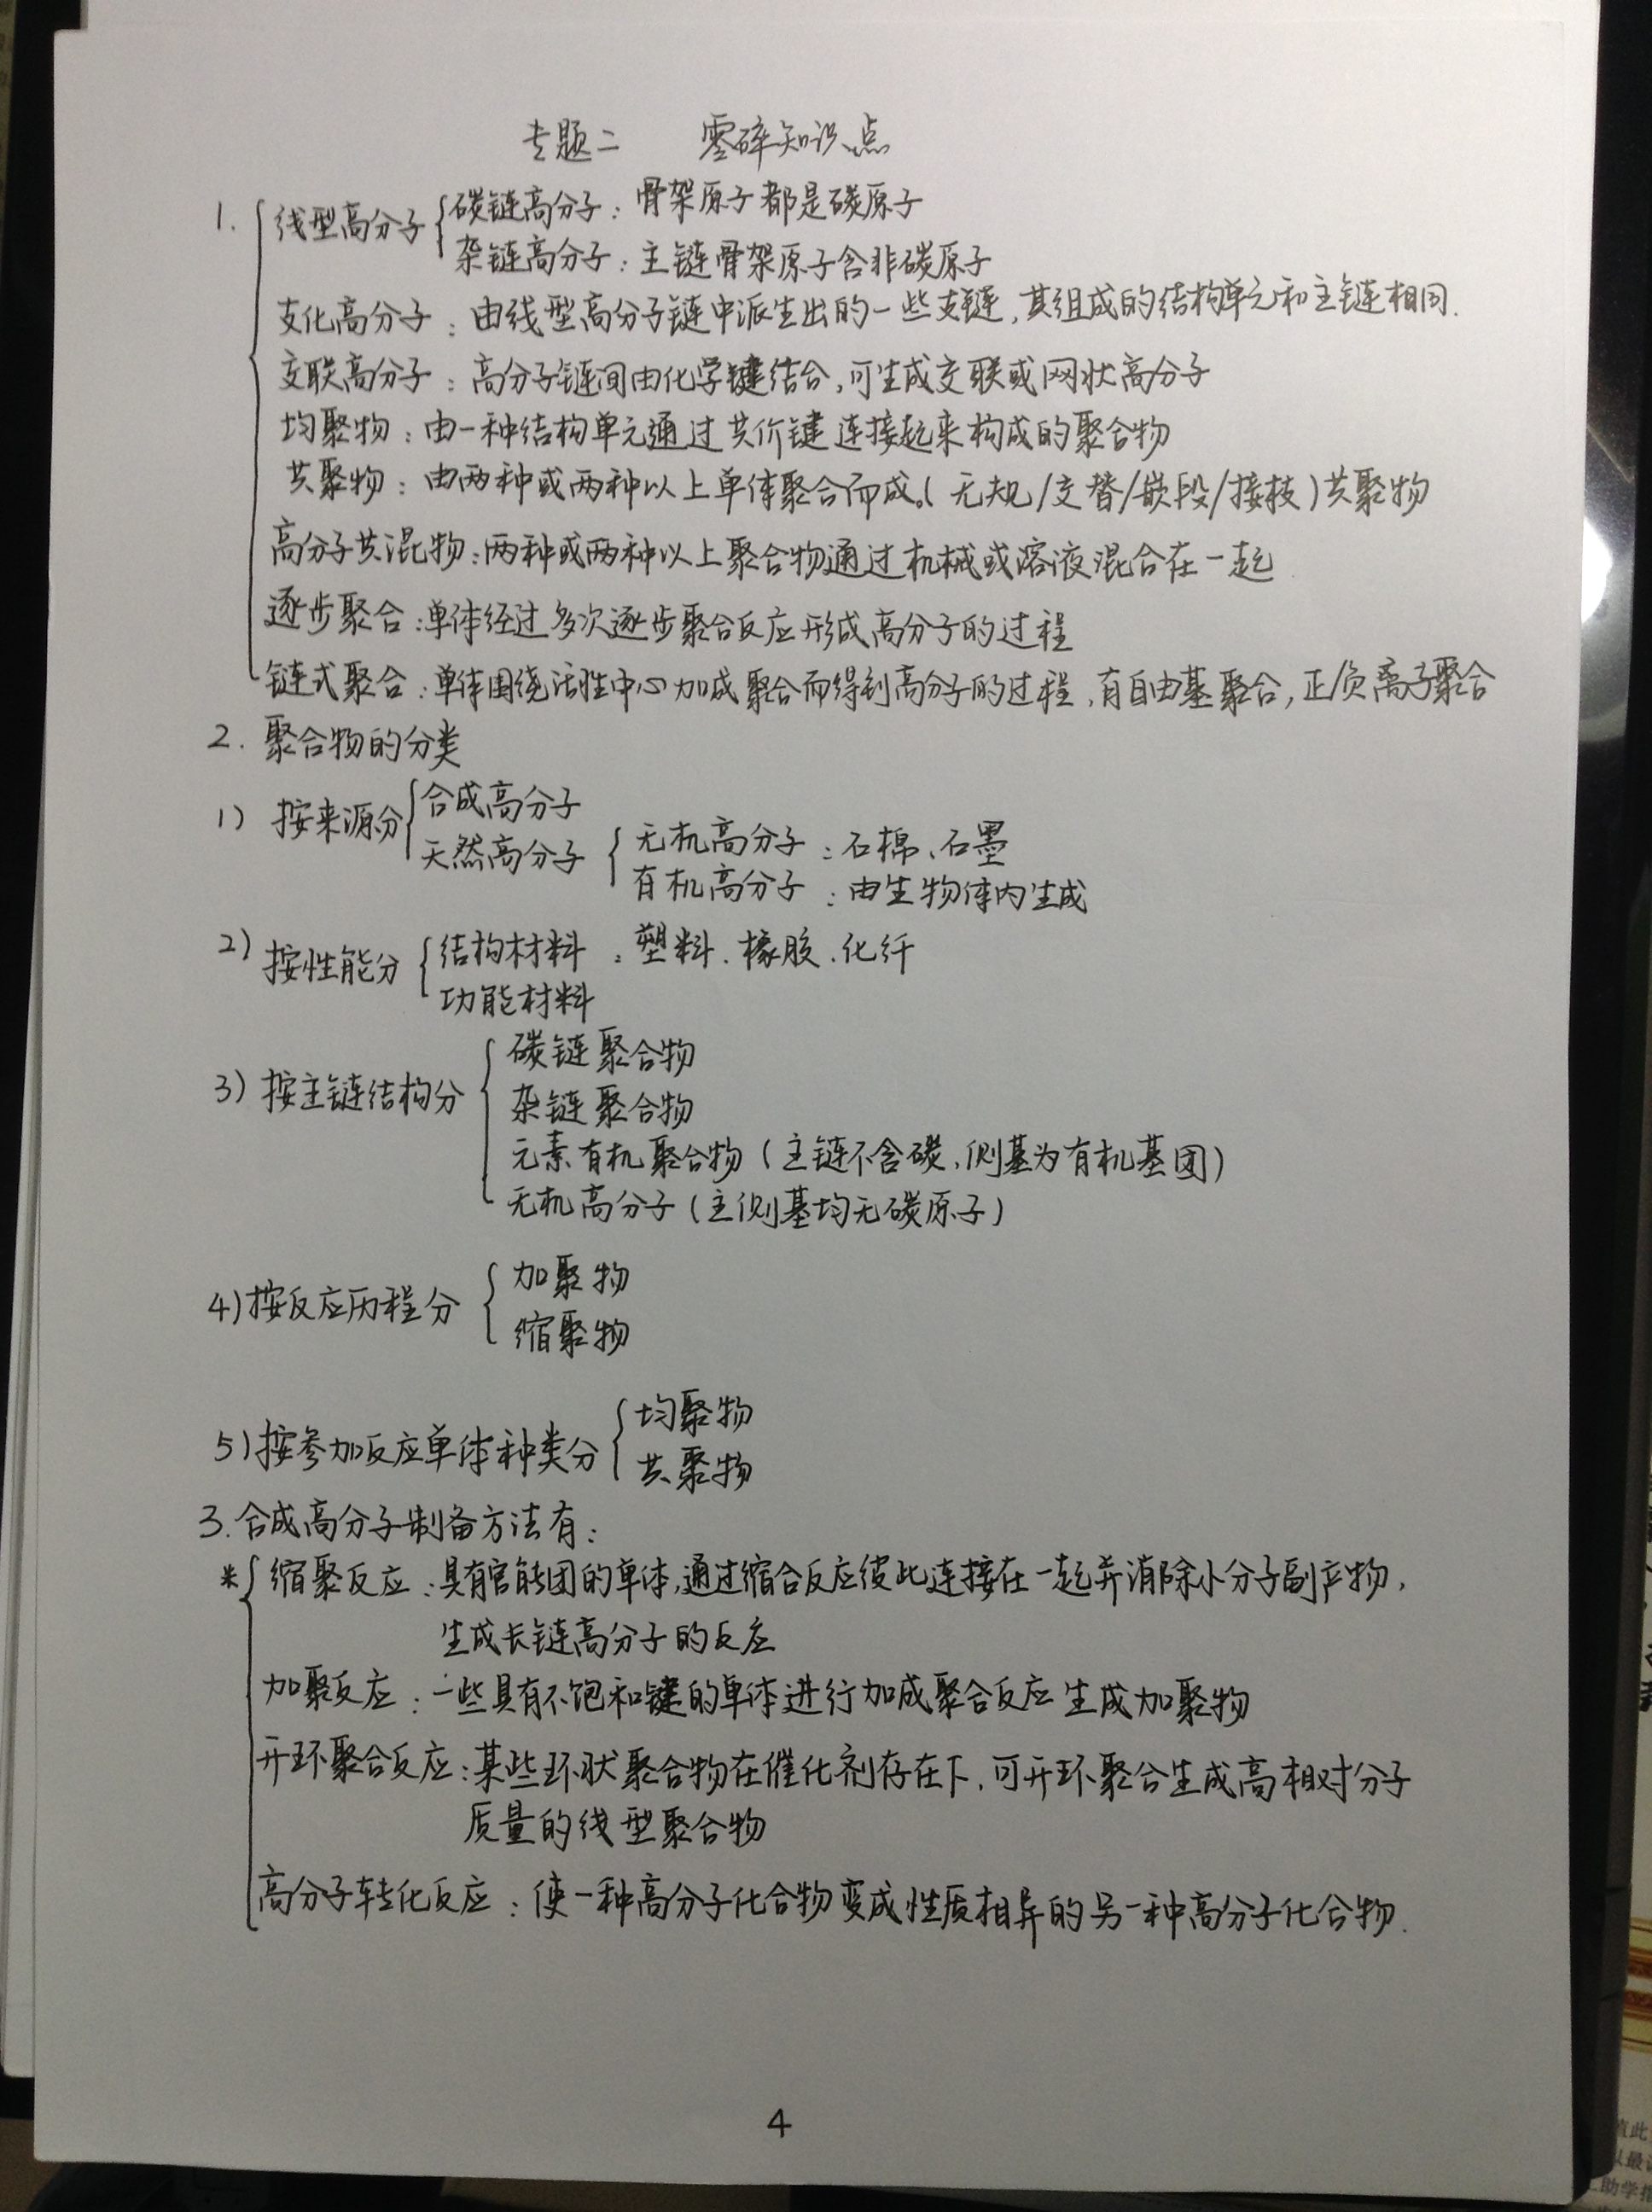 专题二 零碎知识点
1. 线型高分子 碳链高分子：骨架原子都是碳原子
杂链高分子：主链骨架原子含非碳原子
支化高分子：由线型高分子链中派生出的一些支链，其组成的结构单元和主链相同.
交联高分子：高分子链间由化学键结合，可生成交联或网状高分子
均聚物：由一种结构单元通过共价键连接起来构成的聚合物
共聚物：由两种或两种以上单体聚合而成。(无规/交替/嵌段/接枝)共聚物
高分子共混物：两种或两种以上聚合物通过机械或溶液混合在一起
逐步聚合：单体经过多次逐步聚合反应形成高分子的过程
链式聚合：单体围绕活性中心加成聚合而得到高分子的过程，有自由基聚合，正/负离子聚合
2. 聚合物的分类
1) 按来源分 合成高分子
天然高分子 无机高分子：石棉、石墨
有机高分子：由生物体内生成
2) 按性能分 结构材料：塑料、橡胶、化纤
功能材料
3) 按主链结构分 碳链聚合物
杂链聚合物
元素有机聚合物(主链不含碳，侧基为有机基团)
无机高分子(主侧基均无碳原子)
4) 按反应历程分 加聚物
缩聚物
5) 按参加反应单体种类分 均聚物
共聚物
3. 合成高分子制备方法有：
* 缩聚反应：具有官能团的单体，通过缩合反应彼此连接在一起并消除小分子副产物，
生成长链高分子的反应
加聚反应：一些具有不饱和键的单体进行加成聚合反应生成加聚物
开环聚合反应：某些环状聚合物在催化剂存在下，可开环聚合生成高相对分子
质量的线型聚合物
高分子转化反应：使一种高分子化合物变成性质相异的另一种高分子化合物.
4